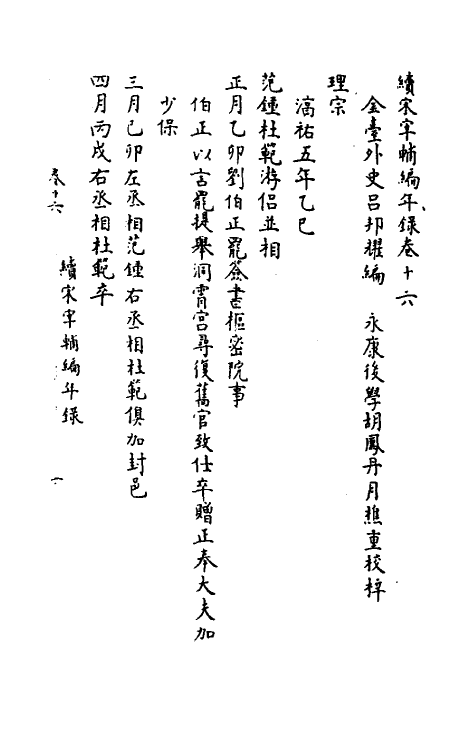 續宋宰輔編年録卷十六
金臺外史呂邦耀編　永康後學胡鳳丹月樵重校梓
理宗
淳祐五年乙巳
范鍾杜範游侣並相
正月乙卯劉伯正罷簽書樞密院事
伯正以言罷提舉洞霄宮尋復舊官致仕卒贈正奉大夫加
少保
三月己卯左丞相范鍾右丞相杜範俱加封邑
四月丙戌右丞相杜範卒
卷十六　續宋宰輔編年録　一